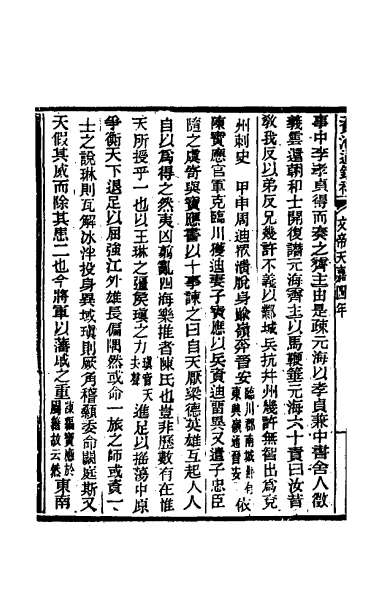 資治通鑑補 文帝天嘉四年
事中李孝貞得而奏之齊主由是疎元海以孝貞兼中書舍人徵
義雲還朝和士開復譖元海齊主以馬鞭箠元海六十責曰汝昔
教我反以弟反兄幾許不義以鄴城兵抗并州幾許無智出為兗
州刺史　甲申周迪衆潰脫身踰嶺奔晉安臨川郡南城縣有東興嶺通晉安依
陳寶應官軍克臨川獲迪妻子寶應以兵資迪留異又遣子忠臣
隨之虞寄與寶應書以十事諫之曰自天厭梁德英雄互起人人
自以爲得之然夷凶翦亂四海樂推者陳氏也豈非歷數有在惟
天所授乎一也以王琳之彊侯瑱之力瑱音天去聲進足以搖蕩中原
爭衡天下退足以屈強江外雄長偏隅然或命一旅之師或資一
士之說琳則瓦解冰泮投身異域瑱則厥角稽顙委命闕庭斯又
天假其威而除其患二也今將軍以藩戚之重陳編寶應於屬籍故云然東南